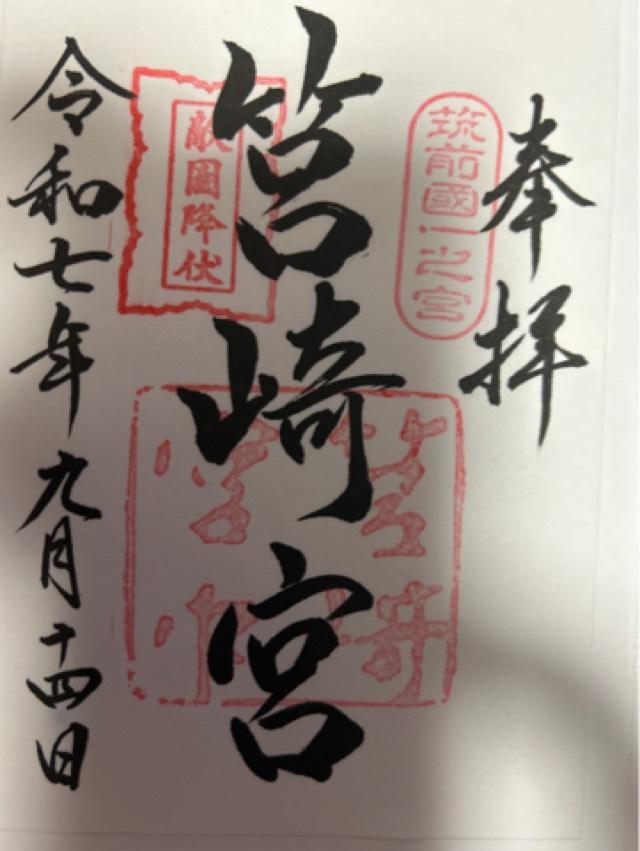 奉拝
筑前國一之宮
筥崎宮
敵國降伏
令和七年九月十四日